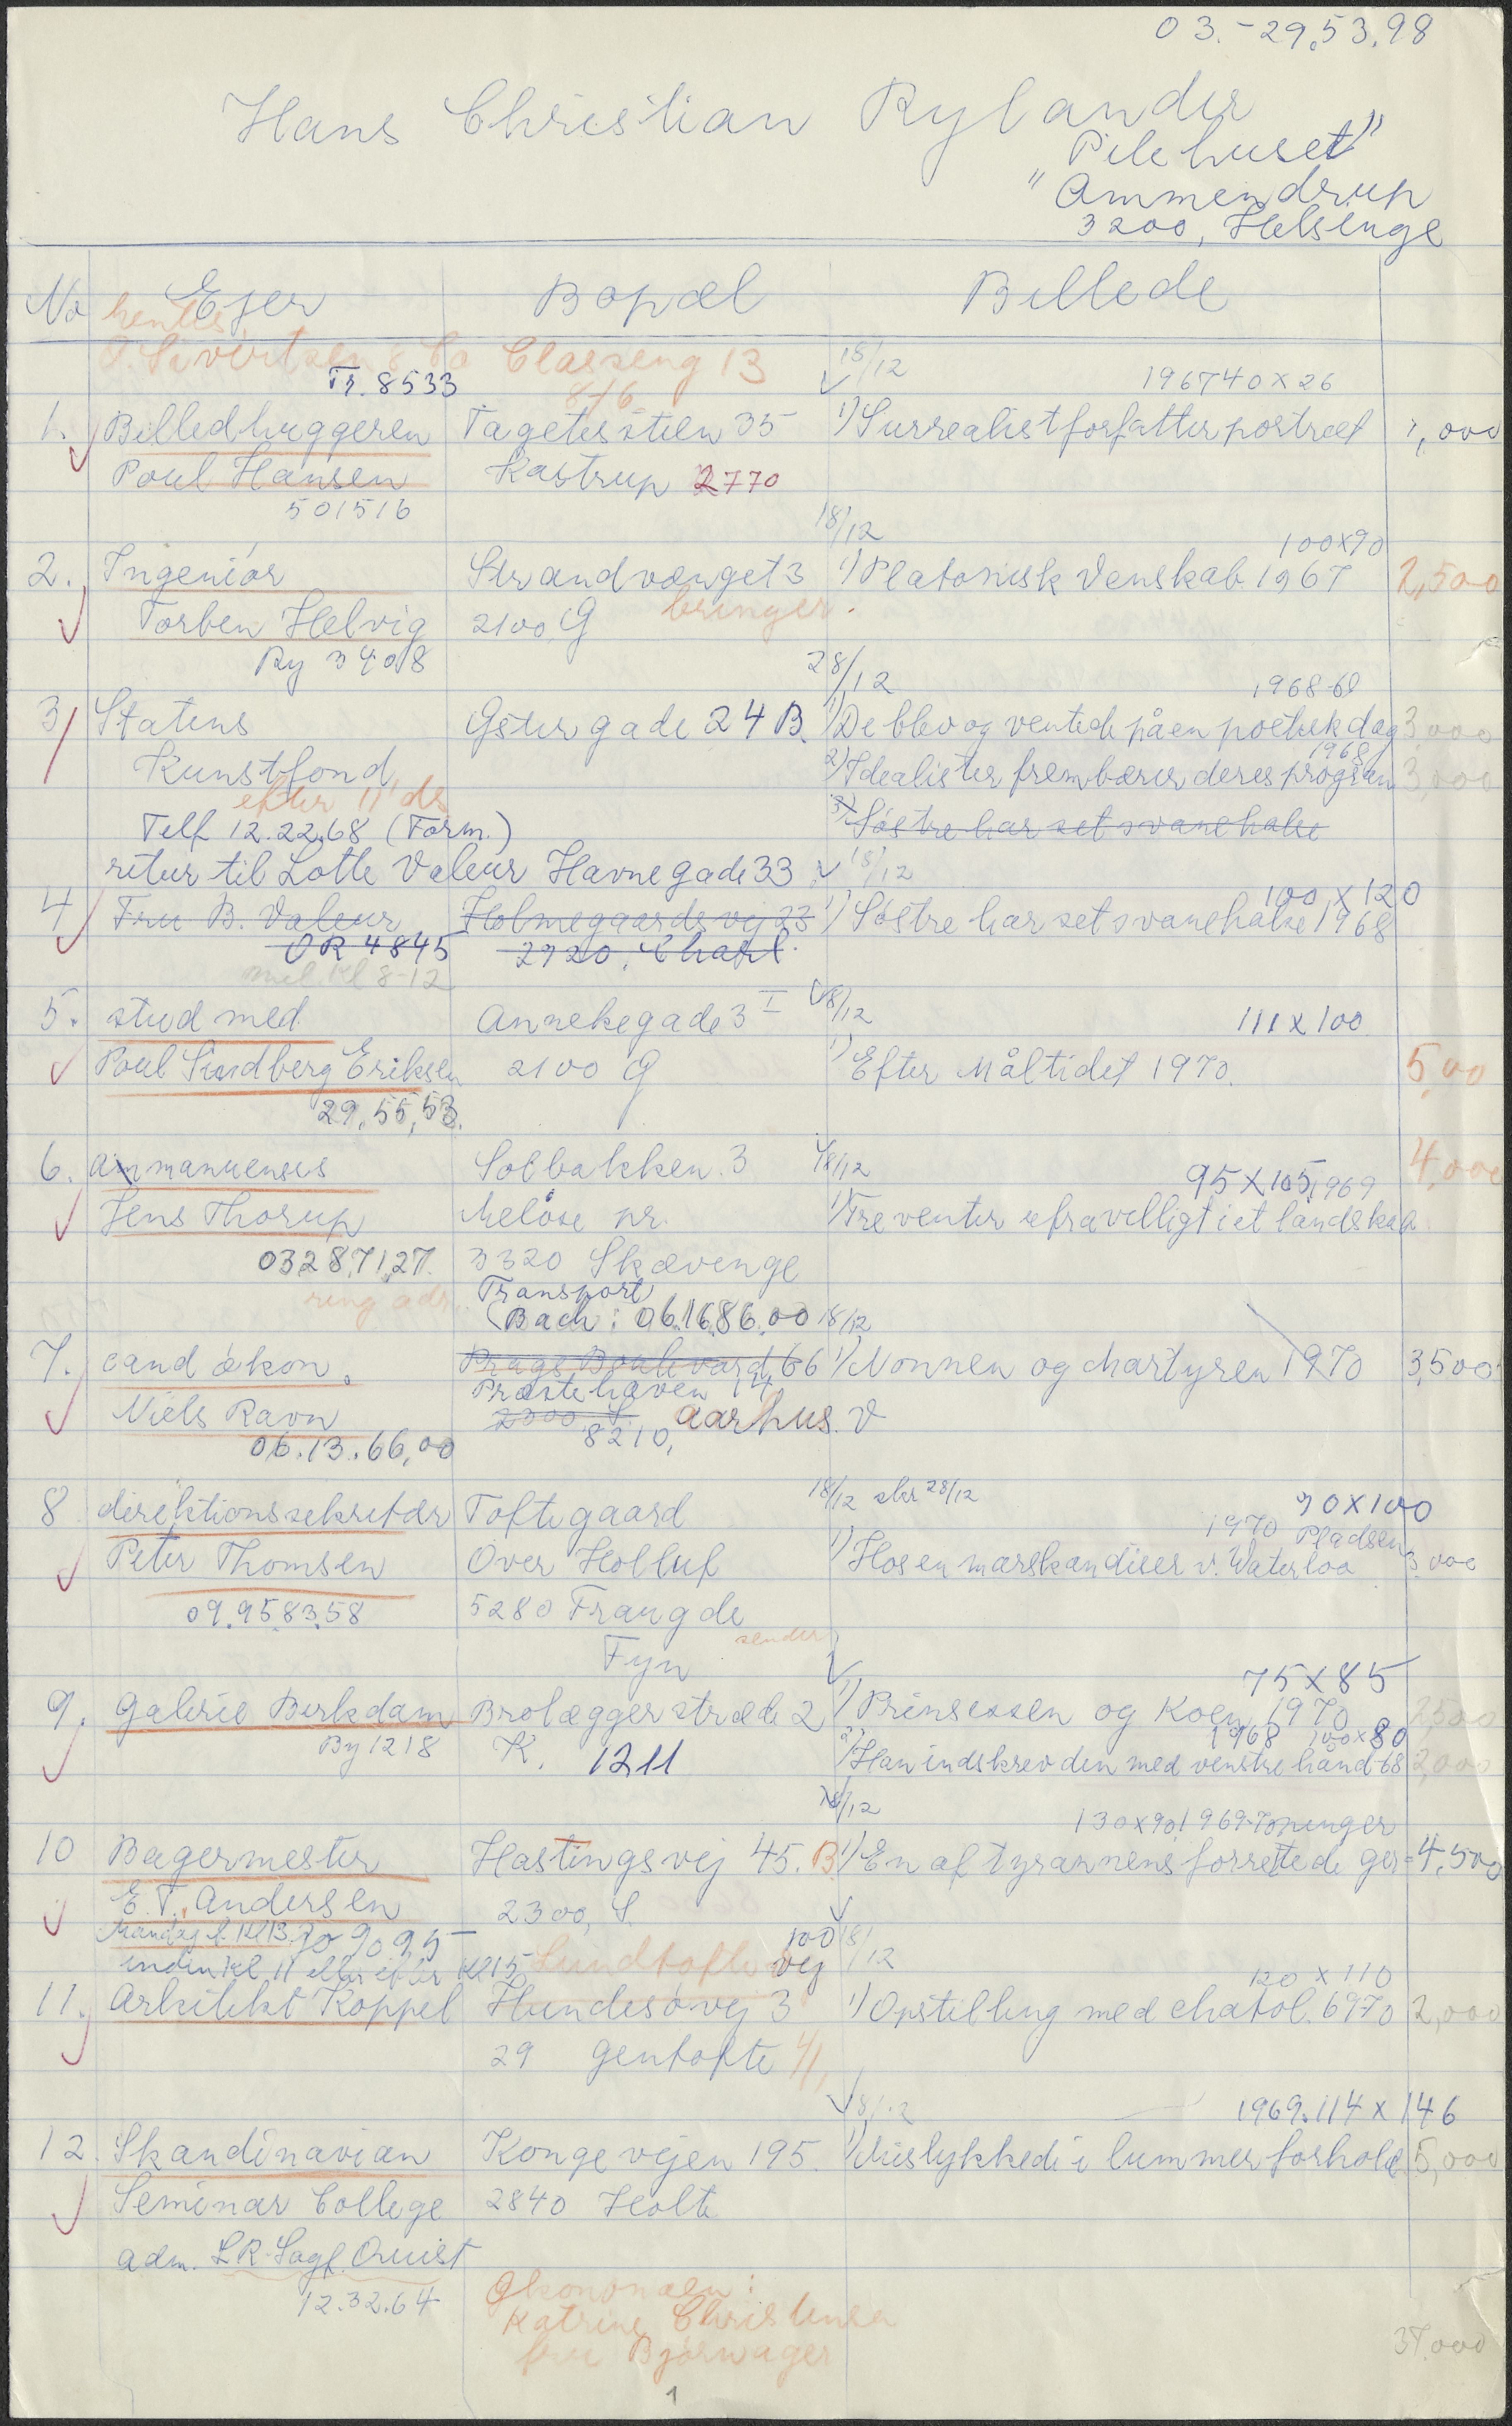 03.-29.53.98
Hans Christian Rylander
"Pilehuset"
Ammendrup
3200, Helsinge
No Ejer Bopæl Billede
hentes
Classeng 13 18/12
Tr. 8533 8-16 1967 40 x 26
1. Billedhuggeren Tagetesstien 35 1) Surrealist forfatterportræt 1,000
Poul Hansen Kastrup 2770
501516
18/12 100x90
2. Ingeniör Strandvænget 3 1) Platonisk Venskab 1967 2,500
Torben Helvig 2100 Ø bringer.
Ry 3408
28/12
1968-61
3 Statens Östergade 24 B. 1) De blev og ventede på en poetisk dag 3,000
1968
Kunstfond 2) Idealister frembærer deres program 3,000
efter 11
Telf 12.22.68 (Form.) 3) Söstre har set svanehalse
retur til Lotte Valeur Havnegade 33 18/12
100 x 120
4 Fru B. Valeur Holmegaardsvej 23 1) Söstre har set svanehalse 1968
OR 4845 2920, Charl.
mel kl 8-12
5. stud med Annekegade 3 I 18/12 111 x 100
Poul Sindberg Eriksen 2100 Ø 1) Efter Måltidet 1970. 5,00
29,55,53.
6. Ammanuensis Solbakken. 3 18/12 4,000
95 x 105, 1969
Jens Thorup Melöse pr. 1) Tre venter ufravilligt i et landskab
03287127. 3320 Skævinge
ring adr. Transport
(Bach: 06.16.86.00 18/12
7. cand økon. Prags Boulevard 66 1) Nonnen og Martyren 1970 3,500
Præstehaven 14
Niels Ravn 2300 S. Aarhus. V
06.13.66,00 8210,
18/12 28/12
8 direktionssekretær Toftegaard 70x100
1970 Pladsen
Peter Thomsen Over Holluf 1) Hos en marskandiser v. Waterloo 3,000
09.958358 5280 Fraugde
sender
Fyn
75x85
9. Galerie Birkdam Brolæggerstræde 2 1) Prinsessen og Koen 1970 2,500
1968 100x80
By 1218 K. 1211 2) Han indskrev den med venstre hånd 68 2,000
18/12
130x90, 1969-70 ninger
10 Bagermester Hastingsvej 45. B 1) En af tyrannens forrettede ger= 4,500
E. T. Andersen 2300, S.
Mandag f. kl 13 100 18/12
inden kl 11 eller efter kl 15 Lundtofte vej 120 x 110
11. Arkitekt Koppel Hundesøvej 3 1) Opstilling med chatol. 6970 2,000
29 Gentofte
18/12 1969. 114 x 146
12. Skandinavian Kongevejen 195. 1) Mislykkede i lummer forhold 5,000
Seminar College 2840 Holte
adm. LR. Sagf. Quist
12.32.64 Økonomaen:
Katrine Christensen
fru Bjornager
37.000
1